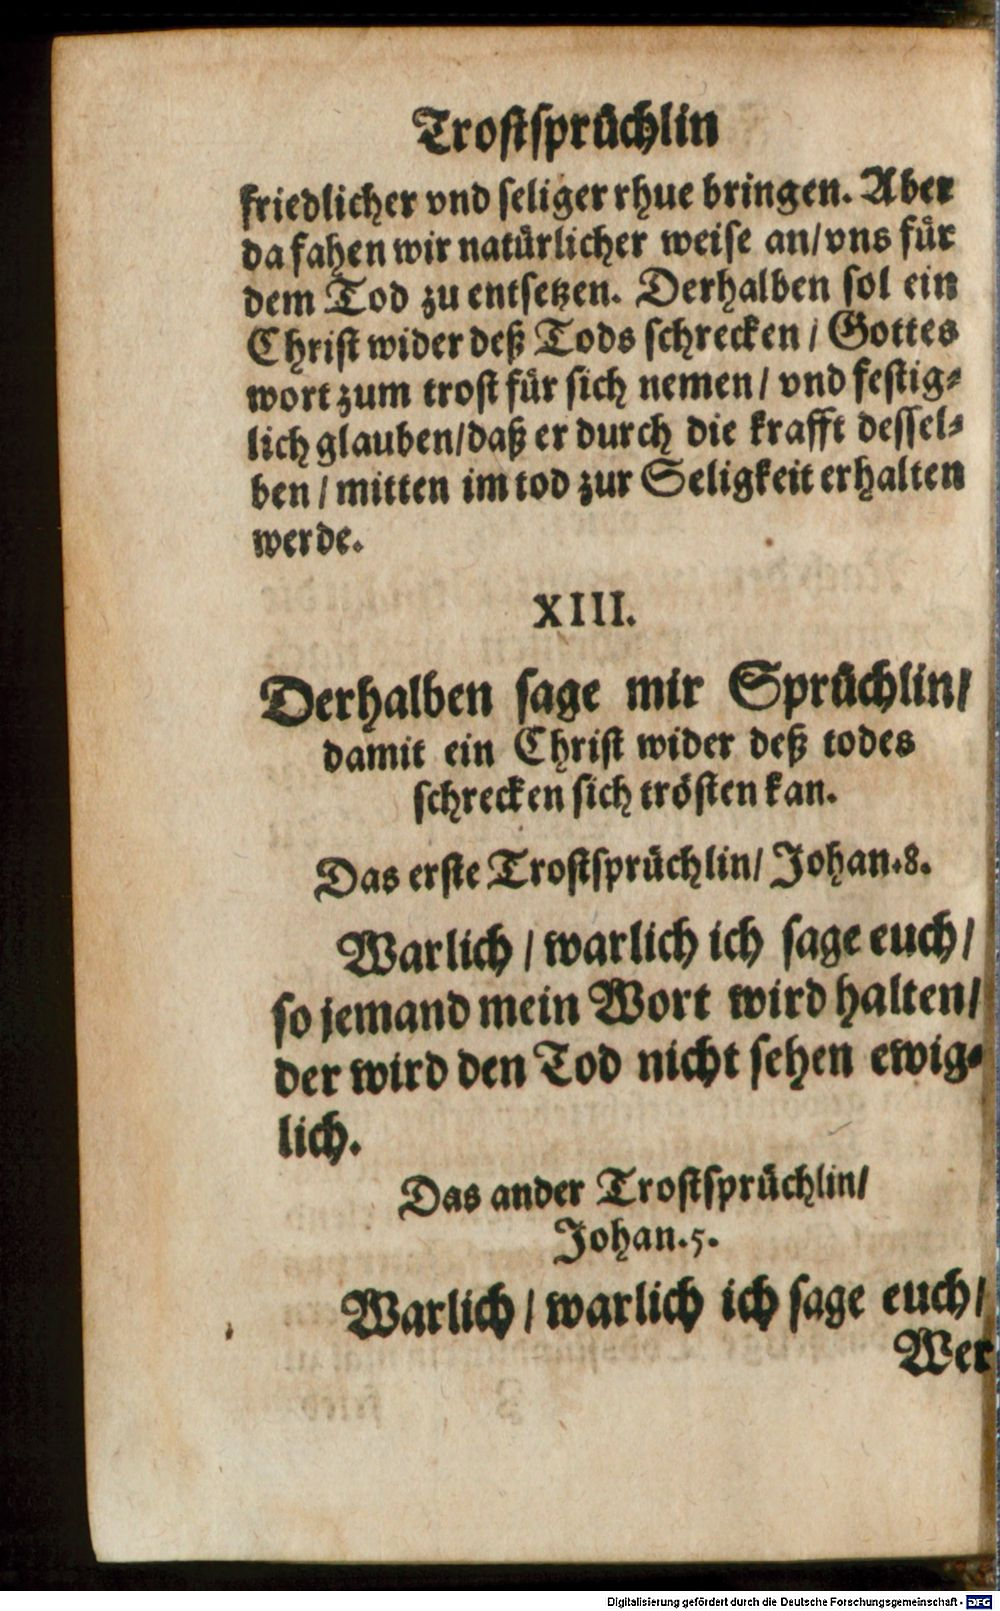 Trostsprüchlin
friedlicher vnd seliger rhue bringen. Aber
da fahen wir natürlicher weise an/vns für
dem Tod zu entsetzen. Derhalben sol ein
Christ wider deß Tods schrecken / Gottes
wort zum trost für sich nemen / vnd festig-
lich glauben/daß er durch die krafft dessel-
ben / mitten im tod zur Seligkeit erhalten
werde.
XIII.
Derhalben sage mir Sprüchlin/
damit ein Christ wider deß todes
schrecken sich trösten kan.
Das erste Trostsprüchlin/ Johan.8.
Warlich / warlich ich sage euch/
so jemand mein Wort wird halten/
der wird den Tod nicht sehen ewig-
lich.
Das ander Trostsprüchlin/
Johan.5.
Warlich / warlich ich sage euch/
Wer
Digitalisierung gefördert durch die Deutsche Forschungsgemeinschaft - DFG